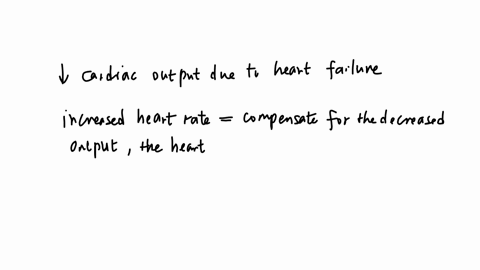 ↓ cardiac output due to heart failure
increased heart rate = compensate for the decreased
output, the heart